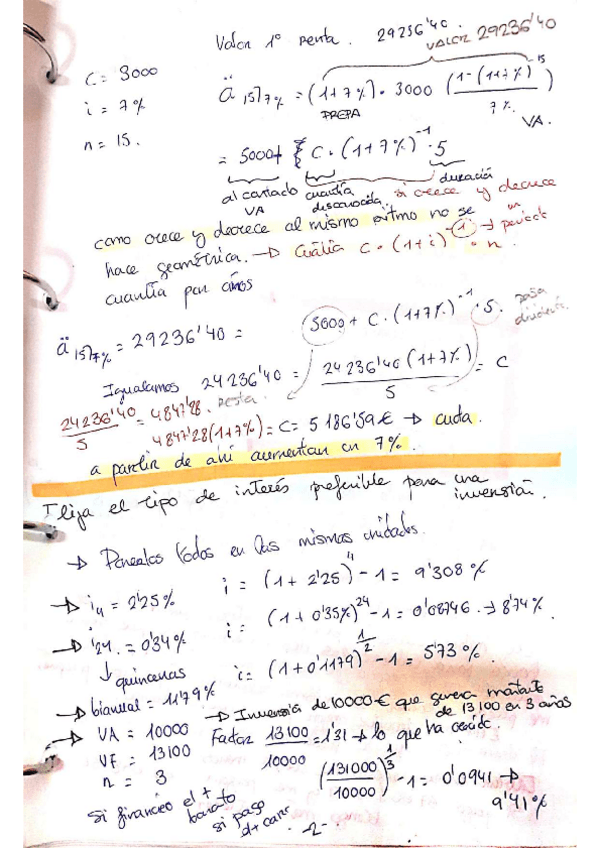 Valor 1º renta. 29236'40.
VALOR 29236'40
C = 3000
i = 7%
n = 15.
ä 15]7% = (1+7%) • 3000 (1-(1+7%)^-15 / 7%)
PREPA
VA.
= 5000+ C • (1+7%)^-1 • 5
al contado cuantía duración
VA desconocida. si crece y decrece
como crece y decrece al mismo ritmo no se
hace geométrica. → Cuantía C • (1+i)^-1 • n.
cuantía por años
ä 15]7% = 29236'40 = 5000 + C • (1+7%)^-1 • 5. pasa
dividiendo.
Igualamos 24236'40 = 24236'40 (1+7%) / 5 = C
24236'40 / 5 = 4847'28. resta.
4847'28 (1+7%) = C = 5186'59€ → cuota.
a partir de ahí aumentan un 7%.
Elija el tipo de interés preferible para una
inversión.
→ Ponerlos todos en las mismas unidades.
→ i4 = 2'25% i = (1+2'25)^4 - 1 = 9'308%
→ i24. = 0'34% i = (1+0'35%)^24 - 1 = 0'08746. → 8'74%.
↓ quincenas
i = (1+0'1179)^1/2 - 1 = 5'73%
→ bianual = 11'79%
→ Inversión de 10000€ que genera montante
de 13100 en 3 años
→ VA = 10000
VF = 13100
n = 3
Factor 13100 / 10000 = 1'31 → lo que ha crecido.
(131000 / 10000)^1/3 - 1 = 0'0941 →
9'41%
Si financio el +
barato
si pago
-2-